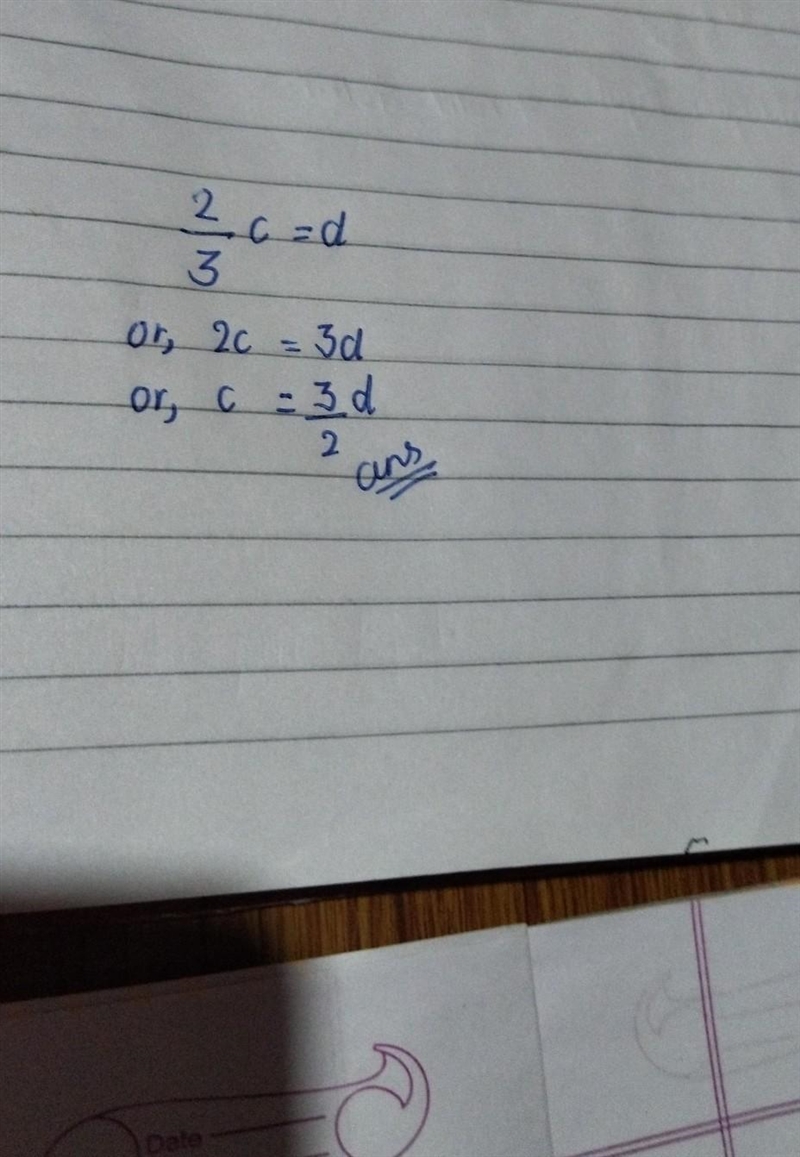 2/3 c = d
or, 2c = 3d
or, c = 3/2 d
ans
Date